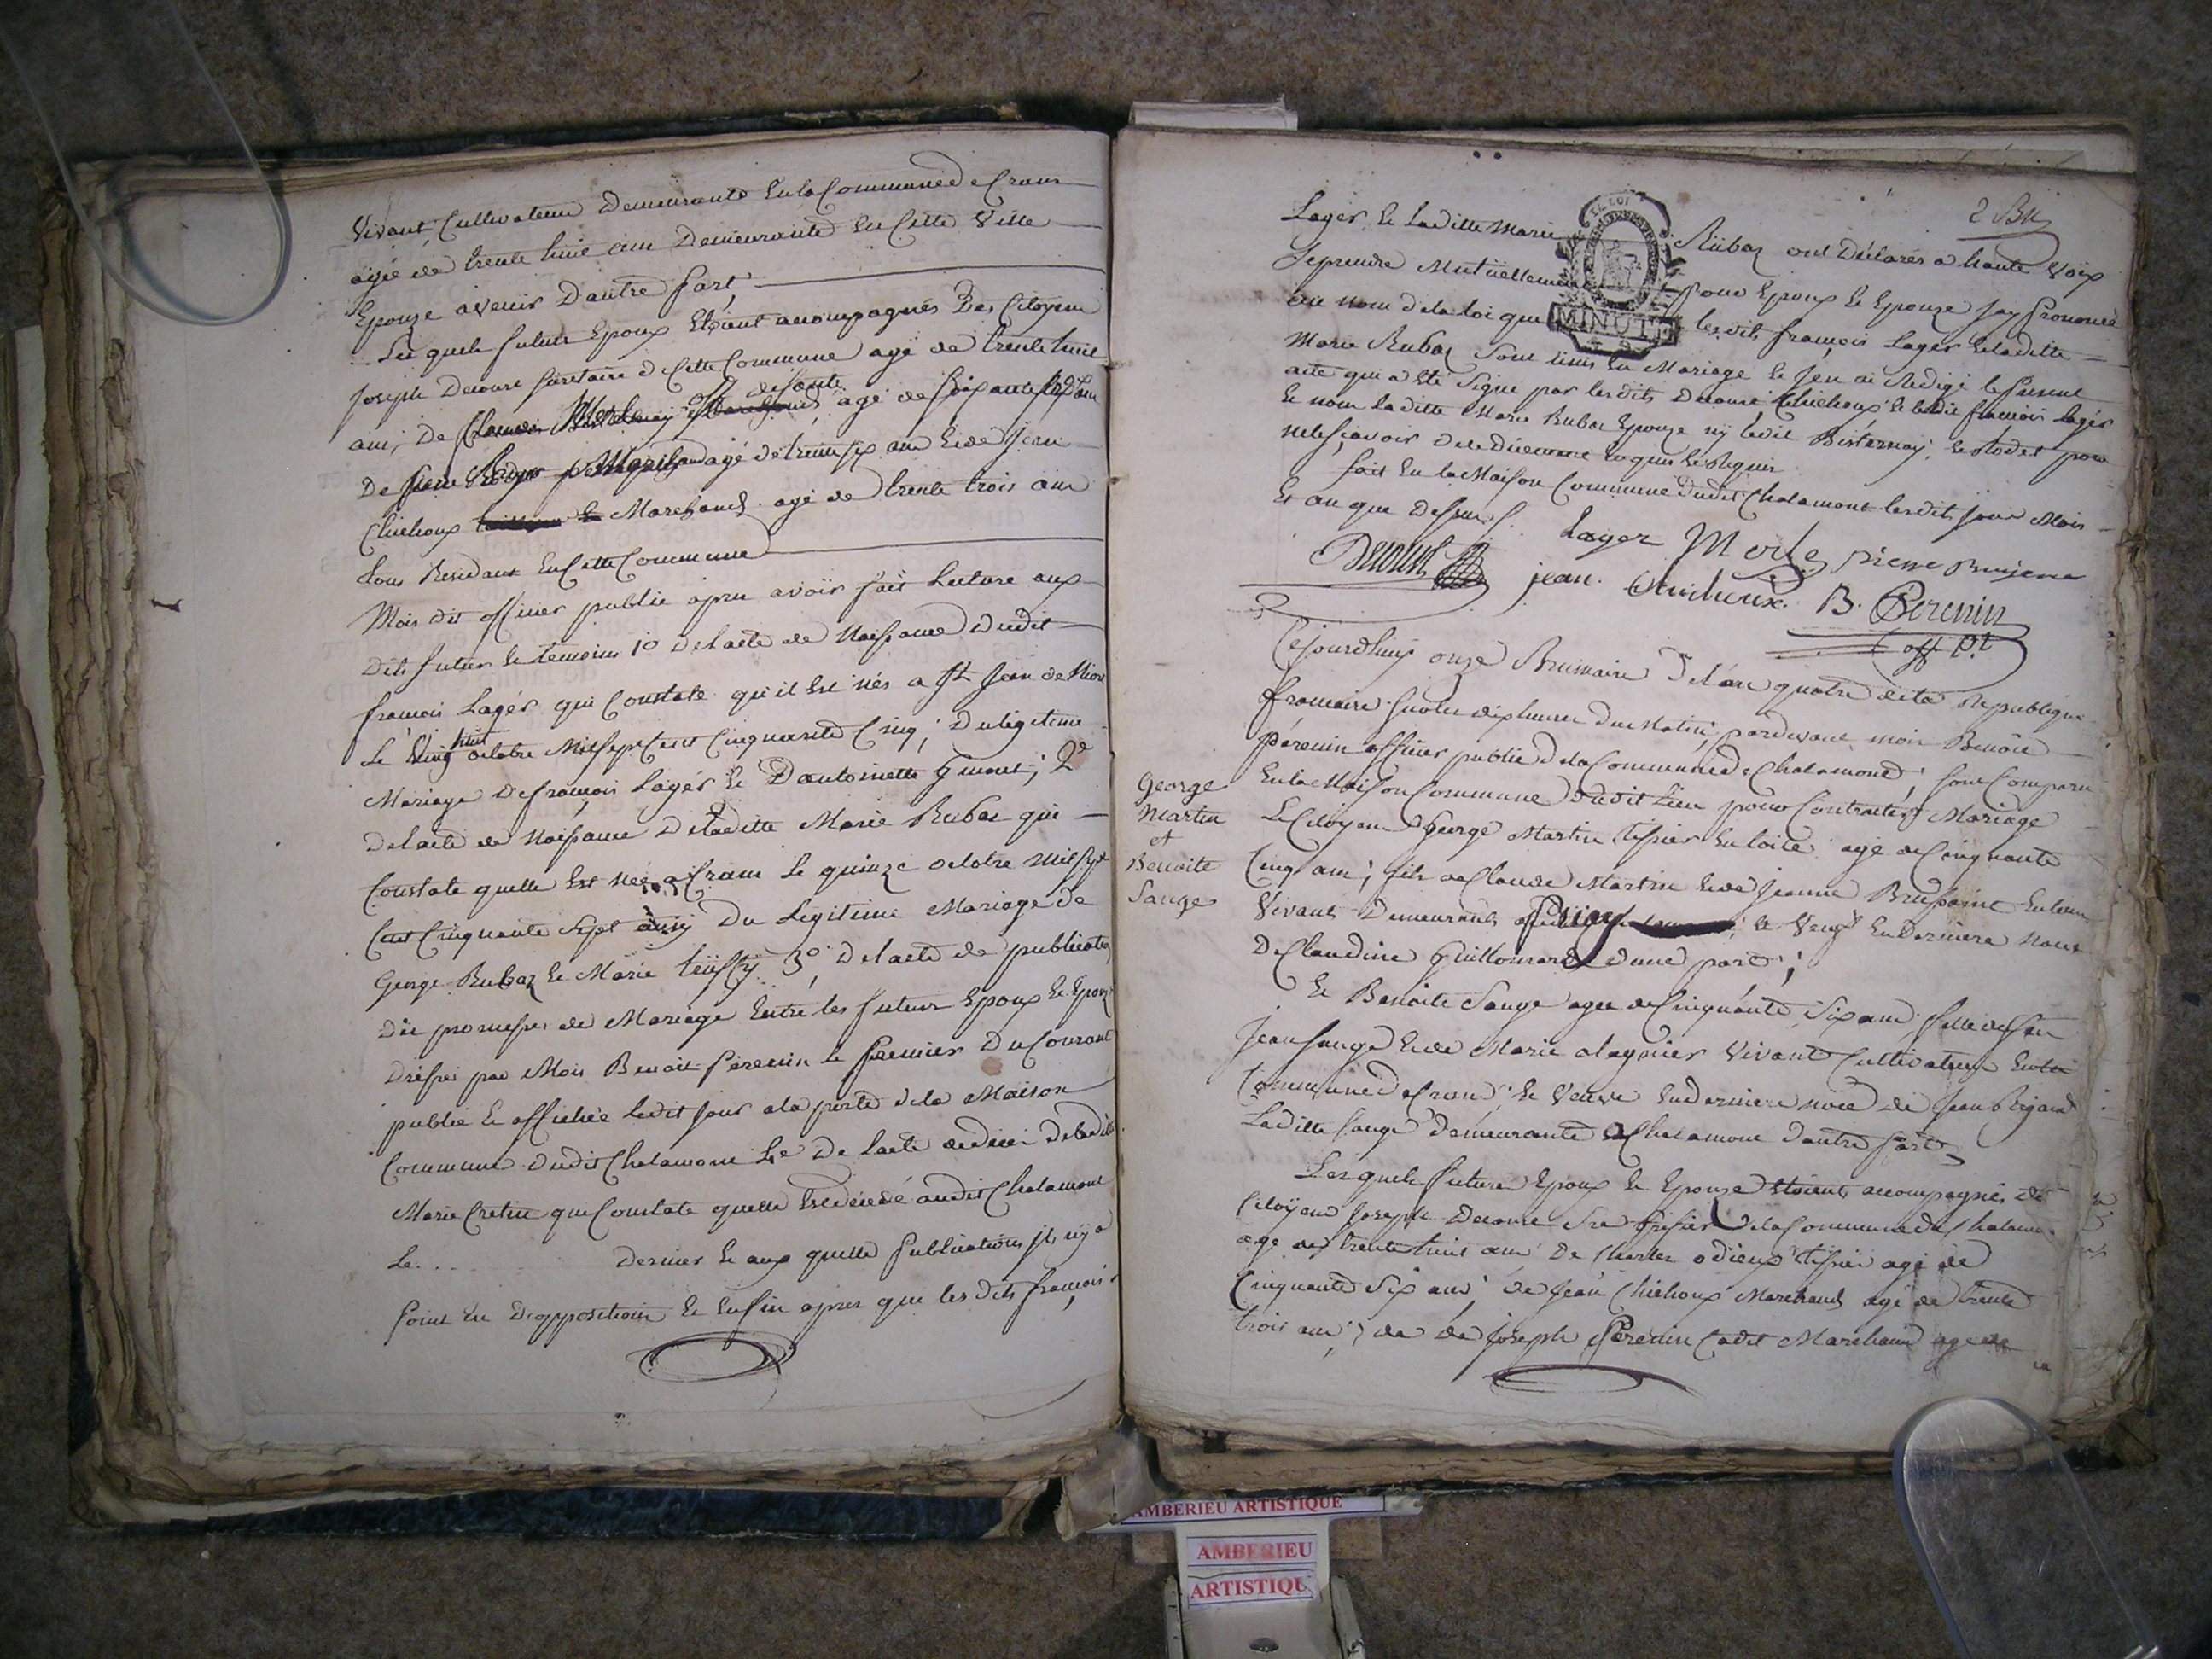 Vivant Cultivateur Demeurante En la Commune de Crans
agée de trente huit ans Demeurante En Cette Ville
Epouze avenir Dautre part,
Les quels futurs Epoux Etoient accompagnés Des Citoyens
Joseph Decoure Secretaire de Cette Commune agé de trente huit
ans, De agé de soixante
De pierre agé de trente six ans Et de Jean
Chicheoux Marchand agé de trente trois ans
tous Residant En Cette Commune
Moi dit officier public apres avoir fait Lecture aux
Dits futurs Et temoins 1º De lacte de Naissance Dudit
françois Lagér qui Constate qu'il Est nés a St Jean de Niost
Le Vingt huit octobre Mil sept Cent Cinquante Cinq; Du legitime
Mariage De françois Lagér Et Dantoinette ; 2º
De lacte de Naissance De laditte Marie Rubaz qui
Constate quelle Est née a Crans Le quinze octobre mil sept
Cent Cinquante Sept aussy Du Legitime Mariage de
George Rubaz Et Marie 3º, De lacte de publication
De promesses de Mariage Entre les futurs Epoux Et Epouze
Dressé par Moi Benoit Perenin Le premier Du Courant
publié Et affichée Ledit Jour a la porte de la Maison
Commune Dudit Chalamont 4º De lacte de deces De ladite
Marie Cretin qui Constate quelle Est décédé audit Chalamont
Le.... Dernier Et aux quelle Publications il ny a
point Eu Dopposition Et Enfin apres que les Dits françois
2 Bu
Lagér, Et Laditte Marie Rubaz ont Déclarés a haute Voix
Se prendre Mutuellement pour Epoux Et Epouze Jay prononcé
au nom de la loi que lesdits françois Lagér Et laditte
LA LOI
MINUTE
Marie Rubaz Sont unis En Mariage Et Jen ai Redigé le present
acte qui a Eté Signé par lesdits Decoure, Chicheoux Et ledit françois Lagér
Et non laditte Marie Rubaz Epouze ny ledit Et Rodet pour
ne le sçavoir De ce Enquis Et Requis
fait En la Maison Commune Dudit Chalamont lesdits jour Mois
Et an que Dessus
Lager Merle pierre
Decoure jean Chicheoux B. Perenin
off. p.t
Cejourdhuy onze Brumaire De lan quatre de la Republique
francaise Sur les dix heures Du Matin, pardevant moi Benoit
Perenin officier public De la Commune de Chalamont, Sont Comparu
En la Maison Commune Dudit Lieu pour Contracter Mariage
George
Martin
et
Benoite
Sange
Le Citoyen George Martin tissier En toile agé de Cinquante
Cinq ans; fils de Claude Martin Et de Jeanne En leur
Vivants Demeurants a ; Et Veuf En Derniere Noces
De Claudine Guillomard Dune part;
Et Benoite Sange agee de Cinquante Six ans, fille de feu
Jean Sange Et de Marie Vivant Cultivateur En la
Commune de Crans, Et Veuve En derniere noce de Jean
Laditte Sange demeurante a Chalamont Dautre part
Lesquels futurs Epoux Et Epouze Etoient accompagnés des
Citoyens Joseph Decoure De la Commune de Chalamont
agé de trente huit ans De Charles odieux tissier agé de
Cinquante Six ans, De Jean Chicheoux Marchand agé de trente
trois ans; Et de Joseph Perenin Cadet Marchand agé de
AMBERIEU ARTISTIQUE
AMBERIEU
ARTISTIQU